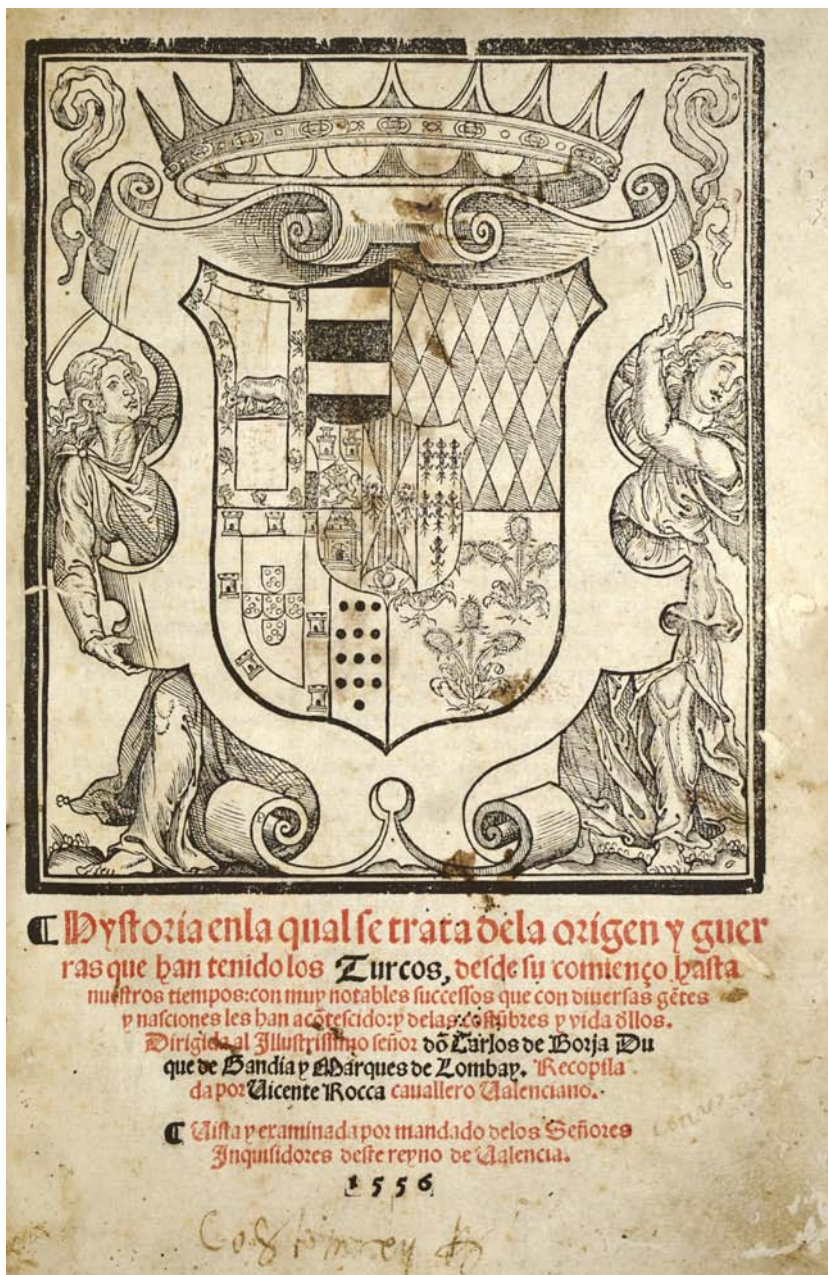 ¶ Hystoria enla qual se trata dela origen y guer
ras que han tenido los Turcos, desde su comienço hasta
nuestros tiempos: con muy notables successos que con diuersas gẽtes
y nasciones les han acõtescido: y delas costũbres y vida dllos.
Dirigida al Illustrissimo señor dõ Carlos de Borja Du
que de Gandia y Marques de Lombay. Recopila
da por Uicente Rocca cauallero Ualenciano.
¶ Uista y examinada por mandado delos Señores
Inquisidores deste reyno de Ualencia.
1556